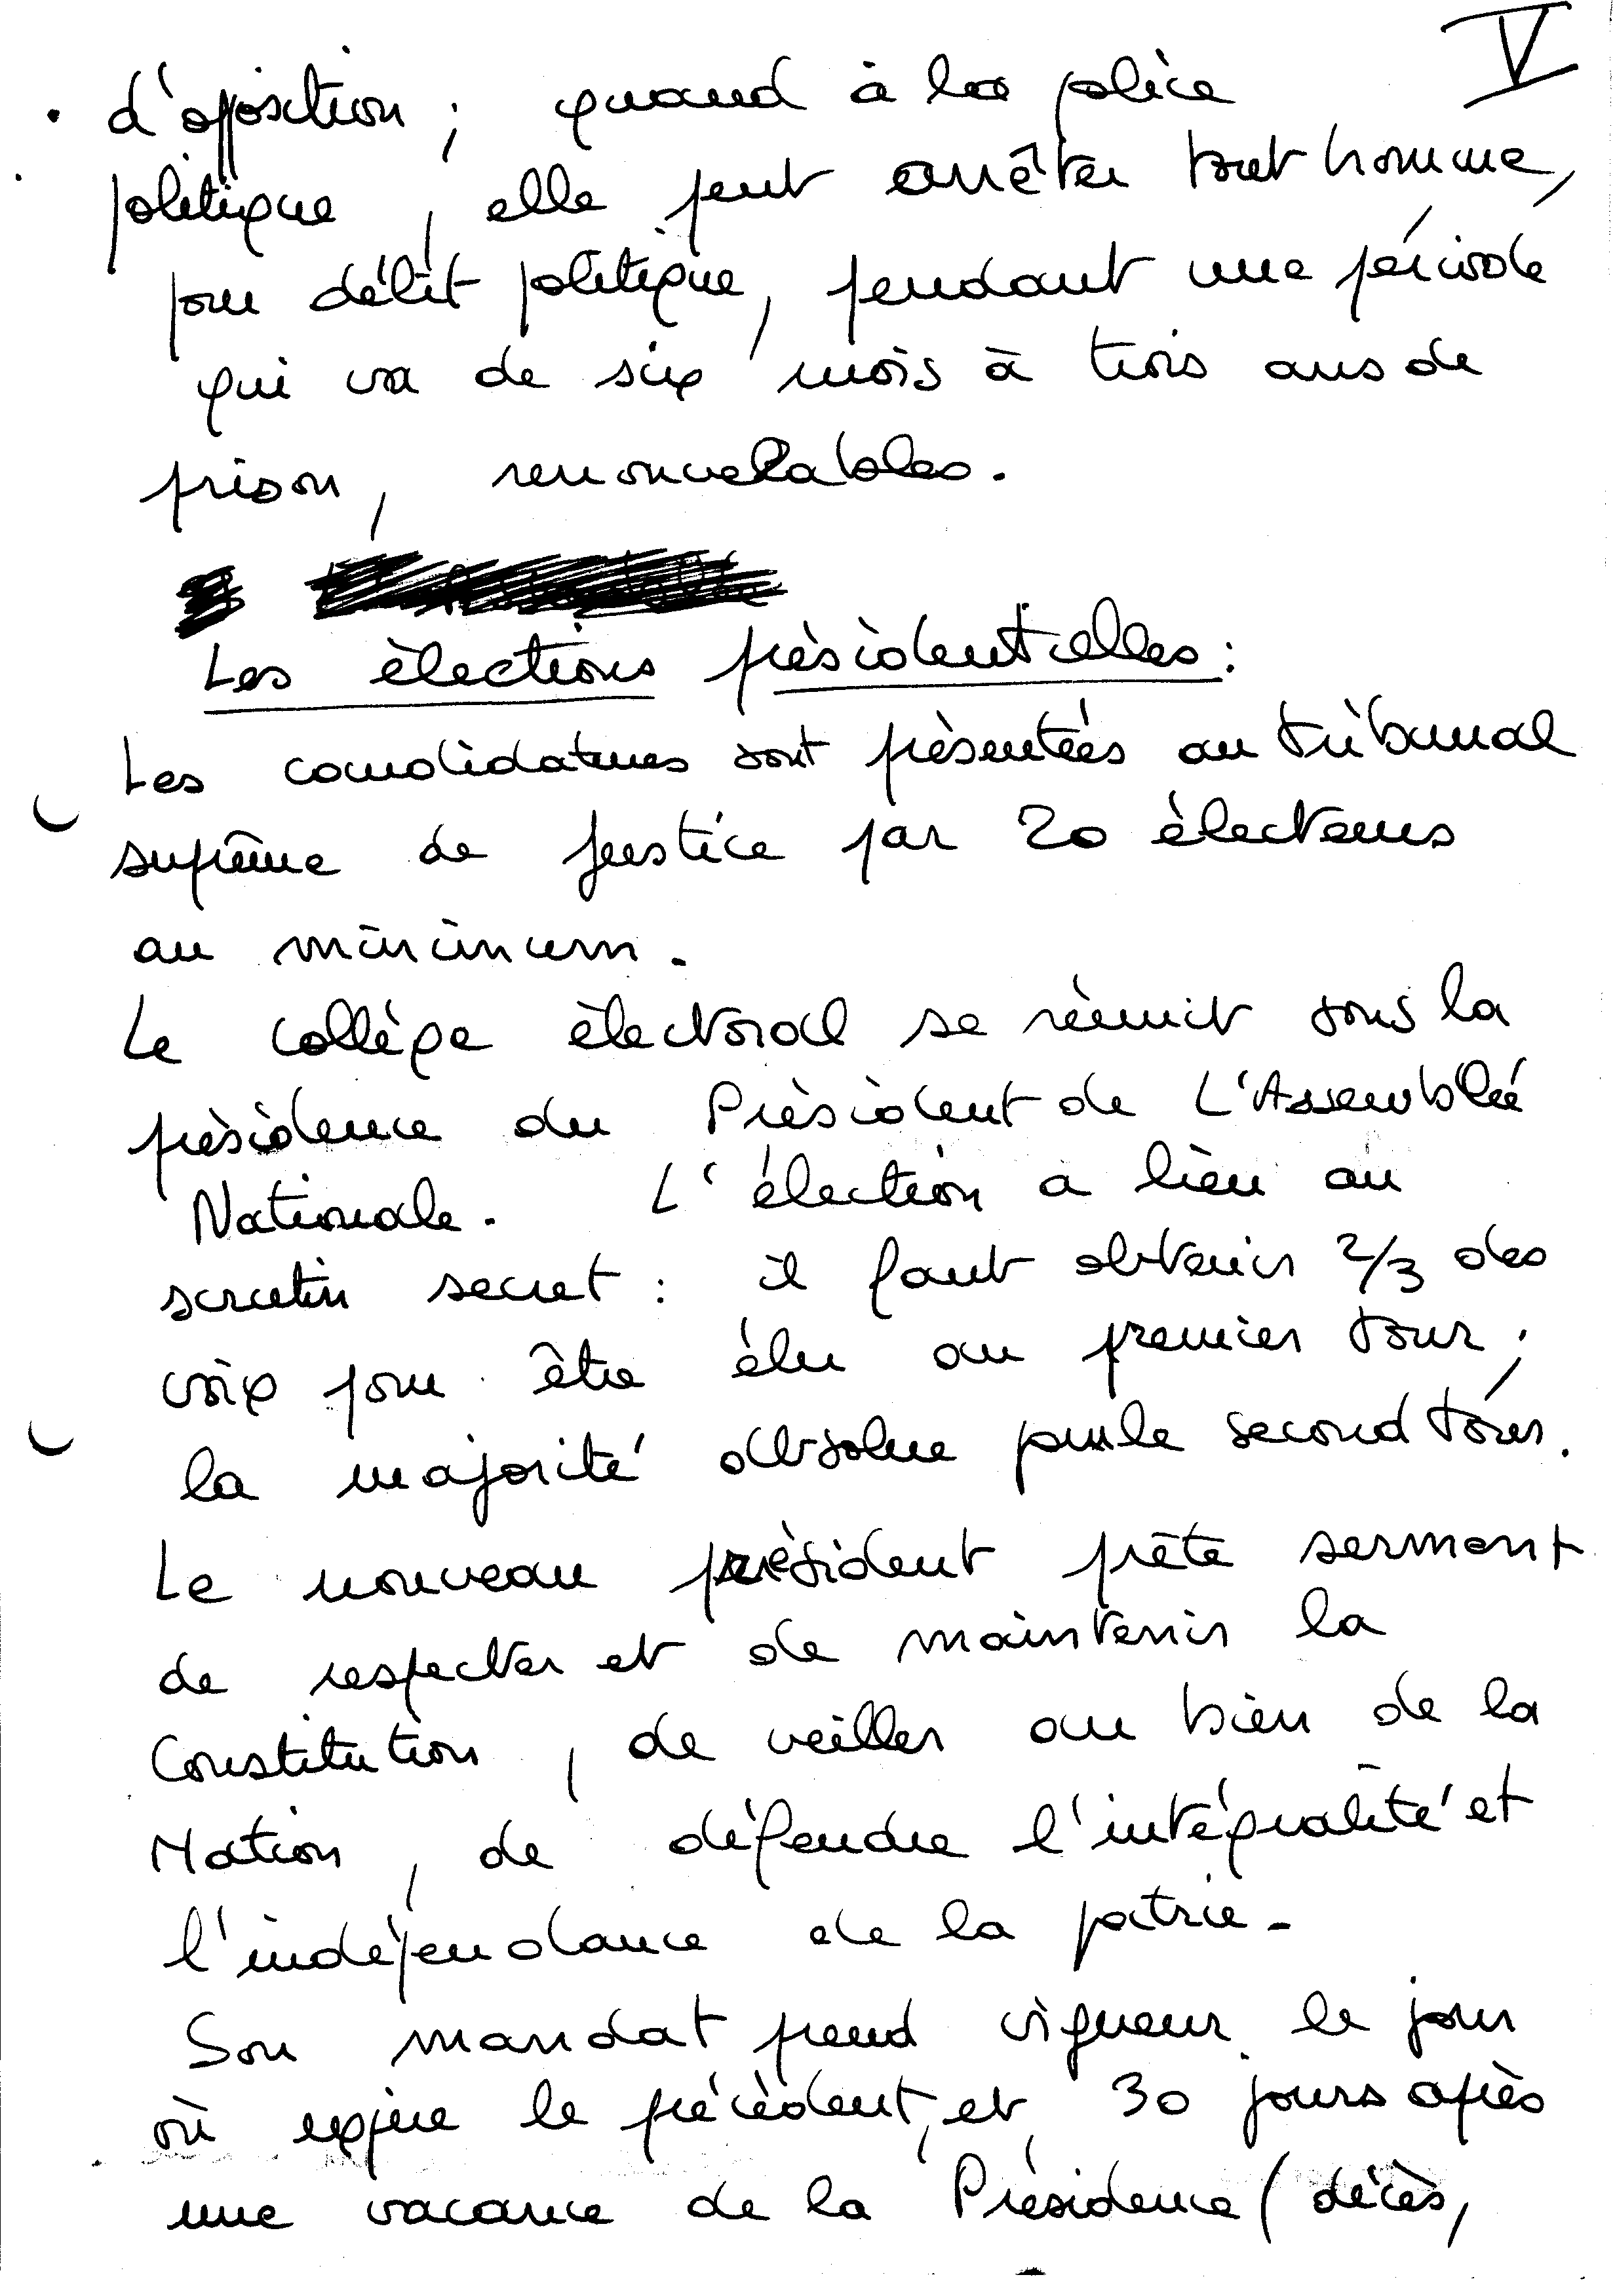 V
d'opposition ; quand à la police
politique, elle peut arrêter tout homme,
pour délit politique, pendant une période
qui va de six mois à trois ans de
prison, renouvelables.
Les élections présidentielles :
Les candidatures sont présentées au tribunal
suprême de justice par 20 électeurs
au minimum.
Le collège électoral se réunit sous la
présidence du Président de L'Assemblée
Nationale. L'élection a lieu au
scrutin secret : il faut obtenir 2/3 des
voix pour être élu au premier tour ;
la majorité absolue pour le second tour.
Le nouveau président prête serment
de respecter et de maintenir la
Constitution, de veiller au bien de la
Nation, de défendre l'intégralité et
l'indépendance de la patrie -
Son mandat prend vigueur le jour
où expire le précédent, et, 30 jours après
une vacance de la Présidence (décès,